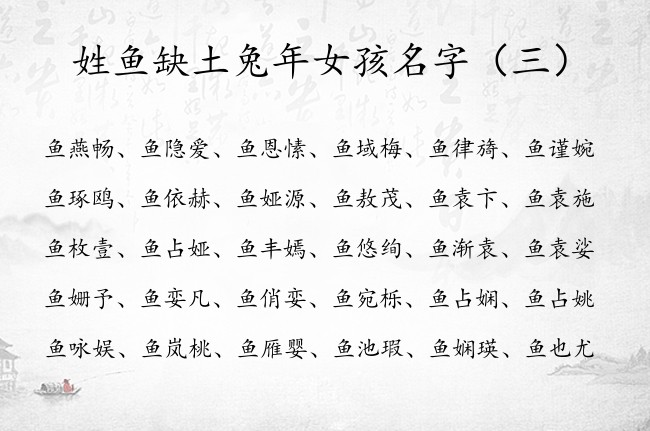 姓鱼缺土兔年女孩名字（三）
鱼燕畅、鱼隐爱、鱼恩愫、鱼域梅、鱼律旖、鱼谨婉
鱼琢鸥、鱼依赫、鱼娅源、鱼敖茂、鱼袁卞、鱼袁施
鱼枚壹、鱼占娅、鱼丰嫣、鱼悠绚、鱼渐袁、鱼袁娑
鱼姗予、鱼娈凡、鱼俏娈、鱼宛栎、鱼占娴、鱼占姚
鱼咏娱、鱼岚桃、鱼雁婴、鱼池瑕、鱼娴瑛、鱼也尤